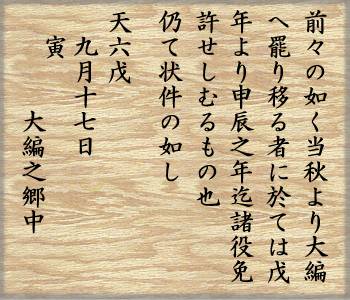 前々の如く当秋より大編
へ罷り移る者に於ては戊
年より申辰之年迄諸役免
許せしむるもの也
仍て状件の如し
天六戊
九月十七日
寅
大編之郷中